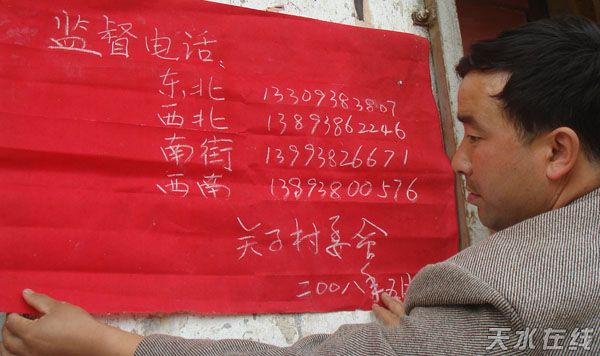 监督电话:
东北 13309383807
西北 13893862246
南街 13993826671
西南 13893800576
关子村委会
二00八年五月
天水在线